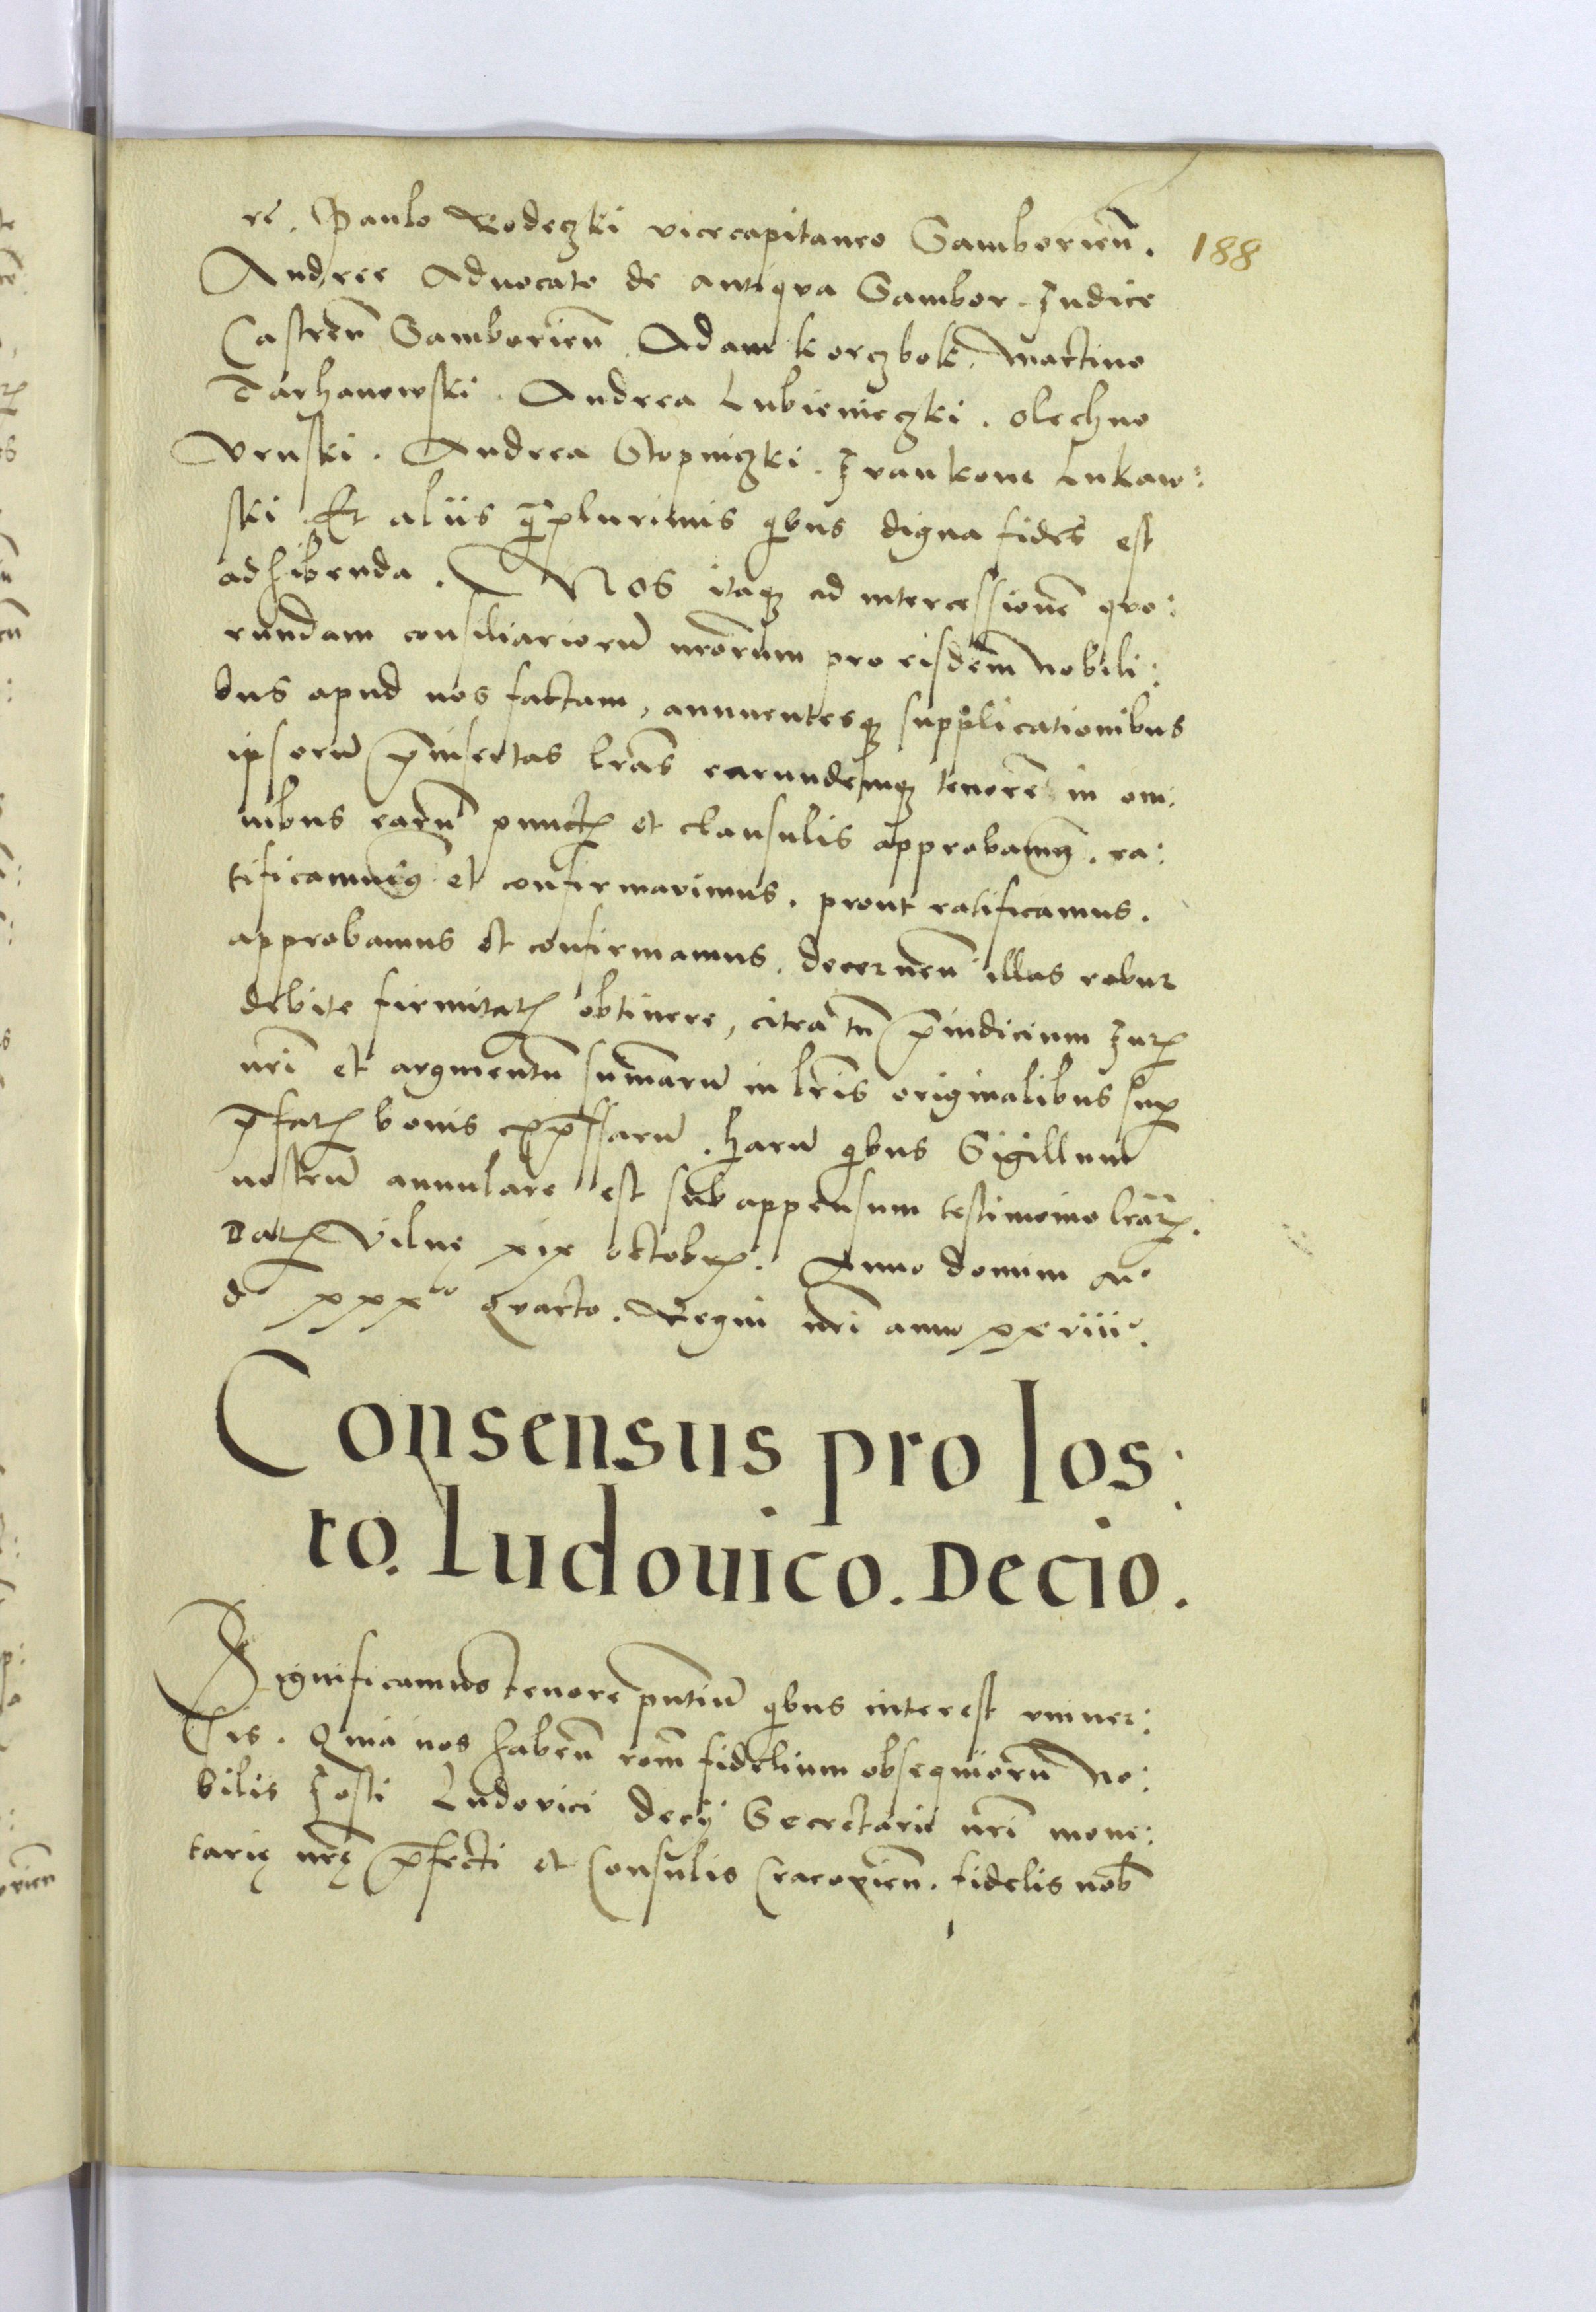 re. Paulo Rodeczki vicecapitaneo Samborien̄. 188
Andree Aduocato de antiqva Sambor. Iudice
Castren̄ Samborien̄. Adam korczbok. Martino
Tarhanowski. Andrea Lubienieczki. Olechno
Vruski. Andrea Stopniczki. Ivankone Lukaw:
ski. Et aliis q̄plurimis qibus digna fides est
adhibenda. Nos itaqꝫ ad intercessionē qvo:
rundam consiliariorū nrōrum pro eisdem Nobili:
bus apud nos factam, annuentesqꝫ supplicationibus
ipsorū p̄insertas lrās earundemqꝫ tenorē in om:
nibus earū punctꝭ et clausulis approbamꝰ. ra:
tificamusqꝫ et confirmauimus. prout ratificamus.
approbamus et confirmamus. decernen̄ illas robur
debite firmitatꝭ obtinere, citra tn̄ p̄iudicium Iurꝭ
nr̄i et argmentū sum̄arū in lrīs originalibus sup
p̄fatꝭ bonis exp̄ssarū. harū qibus Sigillum
nostrū annulare est subappensum testimonio lrārꝭ.
Datꝭ Vilnę xix octobrꝭ. Anno domini Mo
do xxxto qvarto. Regni nr̄i anno xxviiio.
Consensus pro Ios:
to. Ludouico. Decio.
Significamus tenore pn̄tiū qibus interest vniuer:
sis. Quia nos haben̄ rōm fidelium obsequiorū No:
bilis Iosti Ludovici decij Secretarii nr̄i mone:
tarię nr̄ę p̄fecti et Consulis Cracovien̄. fidelis nob̄